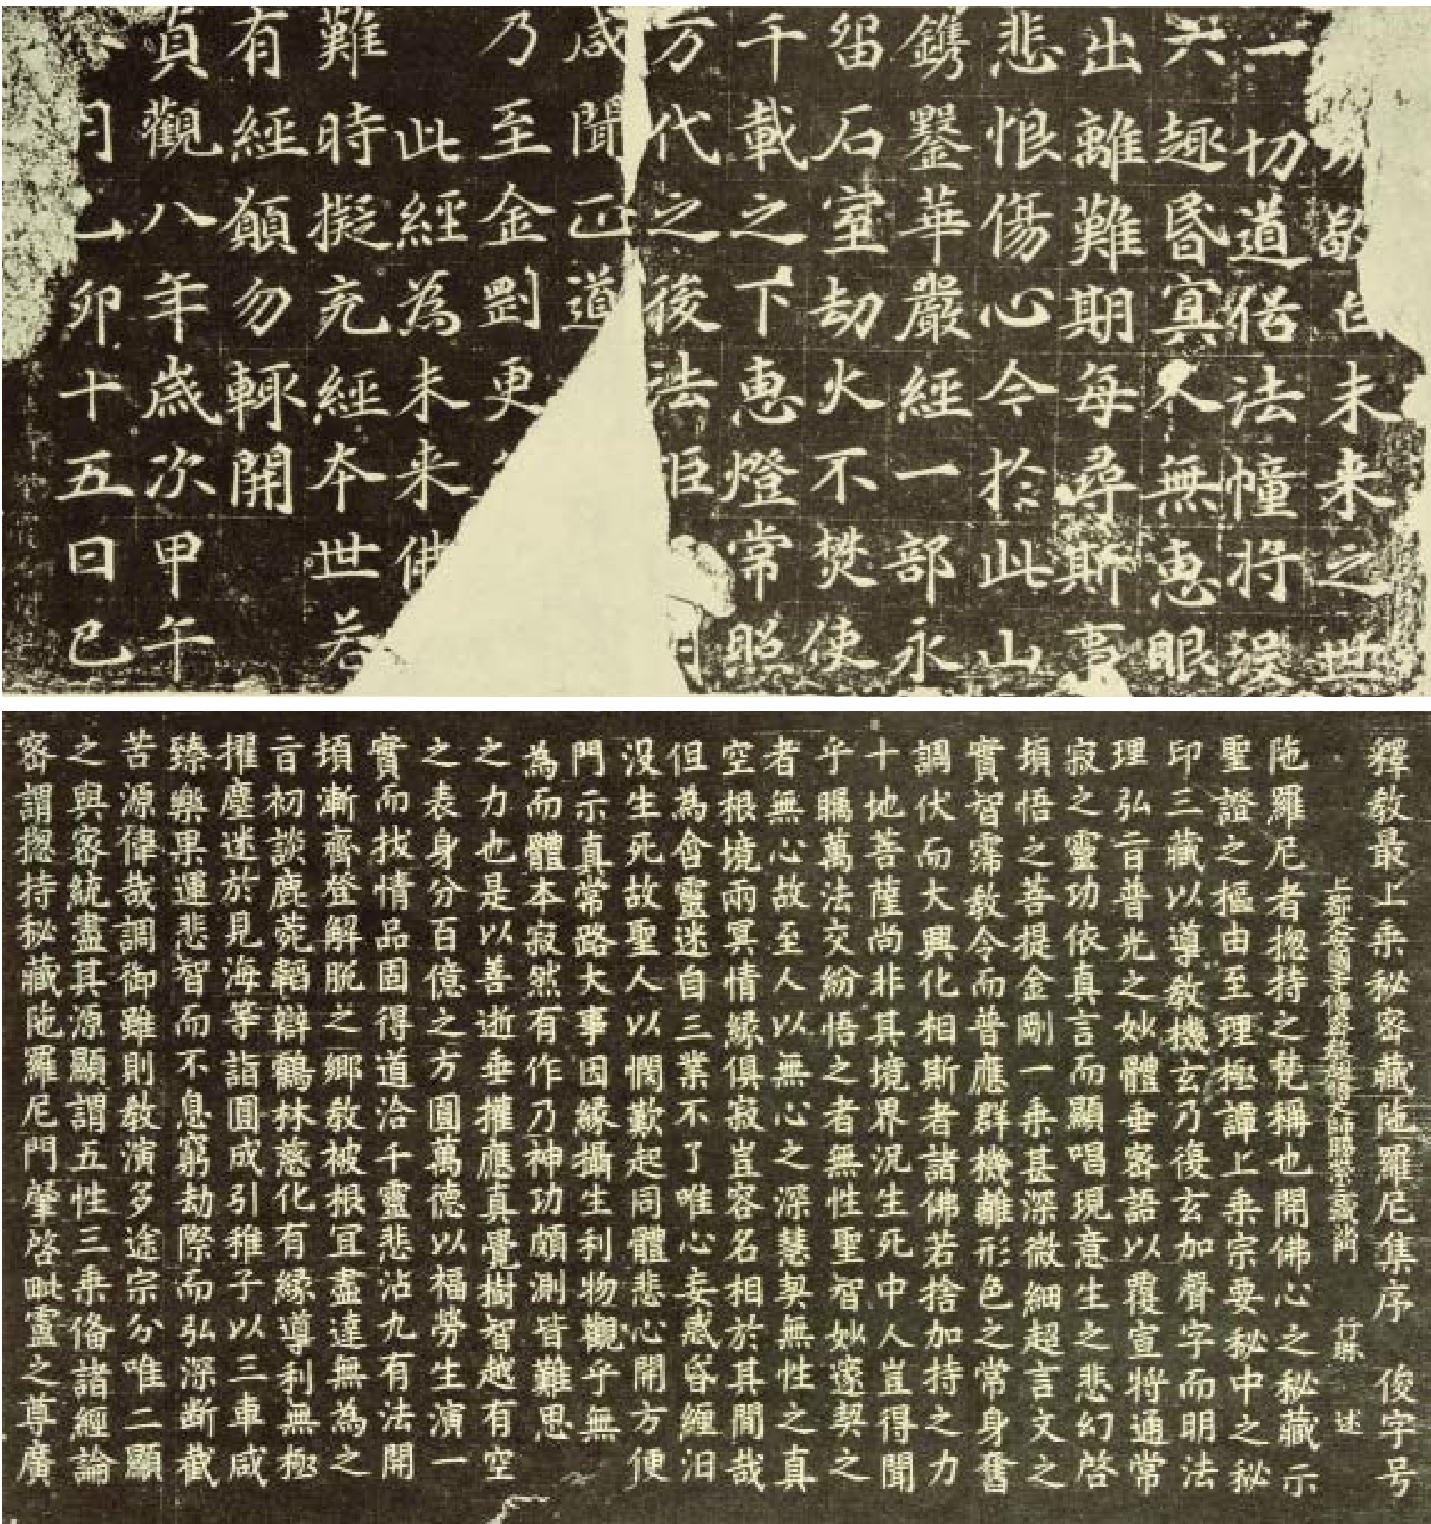 未来之世
一切道俗法幢將没
六趣昏冥久無惠眼
出離難期每尋斯事
悲恨傷心今於此山
鐫鑿華嚴經一部永
留石室劫火不焚使
千載之下惠燈常照
万代之後法炬
咸聞正道
乃至金剛更
此經為未来佛
難時擬充經本世若
有經願勿輒開
貞觀八年歲次甲午
月乙卯十五日己
釋教最上乘秘密藏陁羅尼集序 俊字号
上都大安國寺傳密教超悟大師賜紫三藏沙門 行琳 述
陁羅尼者揔持之梵稱也開佛心之秘藏示
聖證之樞由至理極譚上乘宗要秘中之秘
印三藏以導教機玄乃復玄加聲字而明法
理弘言普光之妙體垂密語以覆宣將通常
寂之靈功依真言而顯唱現意生之悲幻啓
頓悟之菩提金剛一乘甚深微細超言文之
實智霈教令而普應群機離形色之常身奮
調伏而大興化相斯者諸佛若捨加持之力
十地菩薩尚非其境界況生死中人豈得聞
乎矚萬法交紛悟之者無性聖智妙邃契之
者無心故至人以無心之深慧契無性之真
空根境兩冥情緣俱寂豈容名相於其間哉
但為含靈迷自三業不了唯心妄惑昏纏汩
没生死故聖人以憫歎起同體悲心開方便
門示真常路大事因緣攝生利物觀乎無
為而體本寂然有作乃神功頗測皆難思
之力也是以善逝垂權應真覺樹智越有空
之表身分百億之方圓萬德以福勞生演一
實而找情品固得道洽千靈悲沾九有法開
頃漸齊登解脱之鄉教被根宜盡達無為之
言初談鹿菀輻辯鶴林慈化有緣導利無極
擢塵迷於見海等詣圓成引稚子以三車咸
臻樂果運悲智而不息窮劫際而弘深断截
苦源偉哉調御雖則教演多途宗分唯二顯
之與密統盡其源顯謂五性三乘俻諸經論
密謂揔持秘藏陁羅尼門肇啓毗靈之尊廣